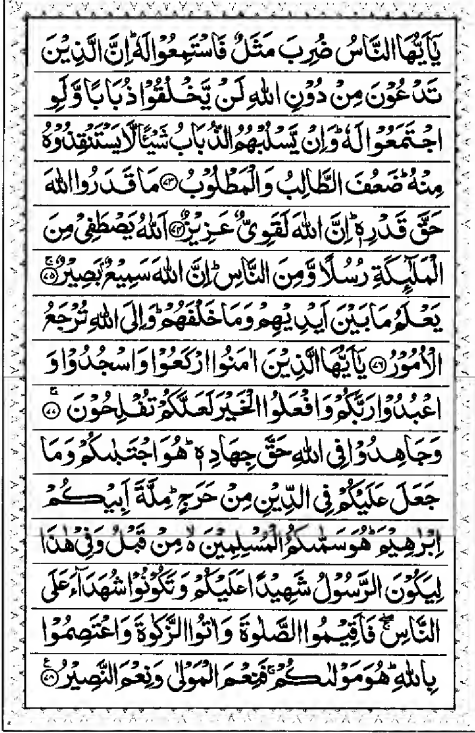 يٰۤاَيُّهَا النَّاسُ ضُرِبَ مَثَلٌ فَاسْتَمِعُوْا لَهٗ ؕ اِنَّ الَّذِيْنَ
تَدْعُوْنَ مِنْ دُوْنِ اللّٰهِ لَنْ يَّخْلُقُوْا ذُبَابًا وَّلَوِ
اجْتَمَعُوْا لَهٗ ؕ وَاِنْ يَّسْلُبْهُمُ الذُّبَابُ شَيْـًٔا لَّا يَسْتَنْقِذُوْهُ
مِنْهُ ؕ ضَعُفَ الطَّالِبُ وَالْمَطْلُوْبُ ﴿۷۳﴾ مَا قَدَرُوا اللّٰهَ
حَقَّ قَدْرِهٖ ؕ اِنَّ اللّٰهَ لَقَوِىٌّ عَزِيْزٌ ﴿۷۴﴾ اَللّٰهُ يَصْطَفِىْ مِنَ
الْمَلٰٓئِكَةِ رُسُلًا وَّمِنَ النَّاسِ ؕ اِنَّ اللّٰهَ سَمِيْعٌۢ بَصِيْرٌ ﴿۷۵﴾
يَعْلَمُ مَا بَيْنَ اَيْدِيْهِمْ وَمَا خَلْفَهُمْ ؕ وَاِلَى اللّٰهِ تُرْجَعُ
الْاُمُوْرُ ﴿۷۶﴾ يٰۤاَيُّهَا الَّذِيْنَ اٰمَنُوا ارْكَعُوْا وَاسْجُدُوْا وَ
اعْبُدُوْا رَبَّكُمْ وَافْعَلُوا الْخَيْرَ لَعَلَّكُمْ تُفْلِحُوْنَ ﴿۷۷﴾
وَجَاهِدُوْا فِى اللّٰهِ حَقَّ جِهَادِهٖ ؕ هُوَ اجْتَبٰٮكُمْ وَمَا
جَعَلَ عَلَيْكُمْ فِى الدِّيْنِ مِنْ حَرَجٍ ؕ مِلَّةَ اَبِيْكُمْ
اِبْرٰهِيْمَ ؕ هُوَ سَمّٰٮكُمُ الْمُسْلِمِيْنَ ۙ مِنْ قَبْلُ وَفِىْ هٰذَا
لِيَكُوْنَ الرَّسُوْلُ شَهِيْدًا عَلَيْكُمْ وَتَكُوْنُوْا شُهَدَآءَ عَلَى
النَّاسِ ۖ فَاَقِيْمُوا الصَّلٰوةَ وَاٰتُوا الزَّكٰوةَ وَاعْتَصِمُوْا
بِاللّٰهِ ؕ هُوَ مَوْلٰٮكُمْ ۚ فَنِعْمَ الْمَوْلٰى وَنِعْمَ النَّصِيْرُ ﴿۷۸﴾